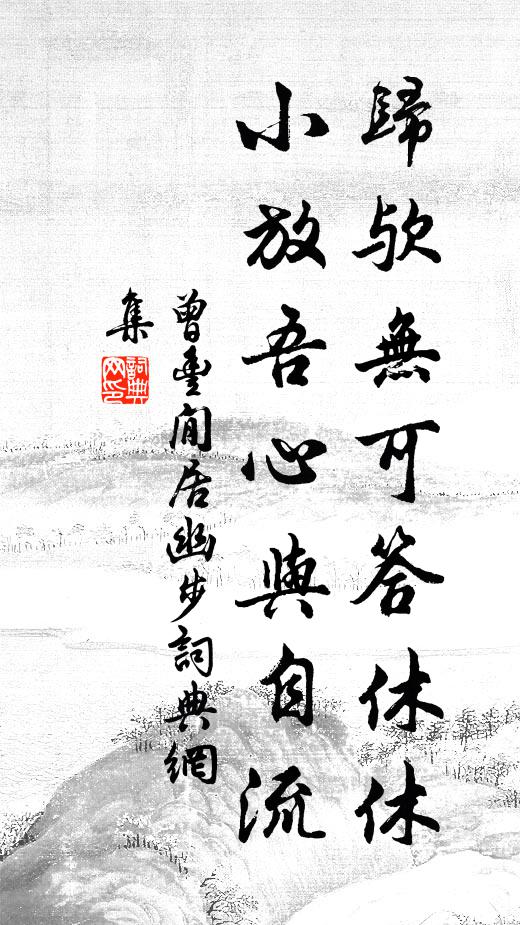 歸歟無可答休休
小放吾心與自流
曾豊閒居幽步詞典網
集
詞典
网印